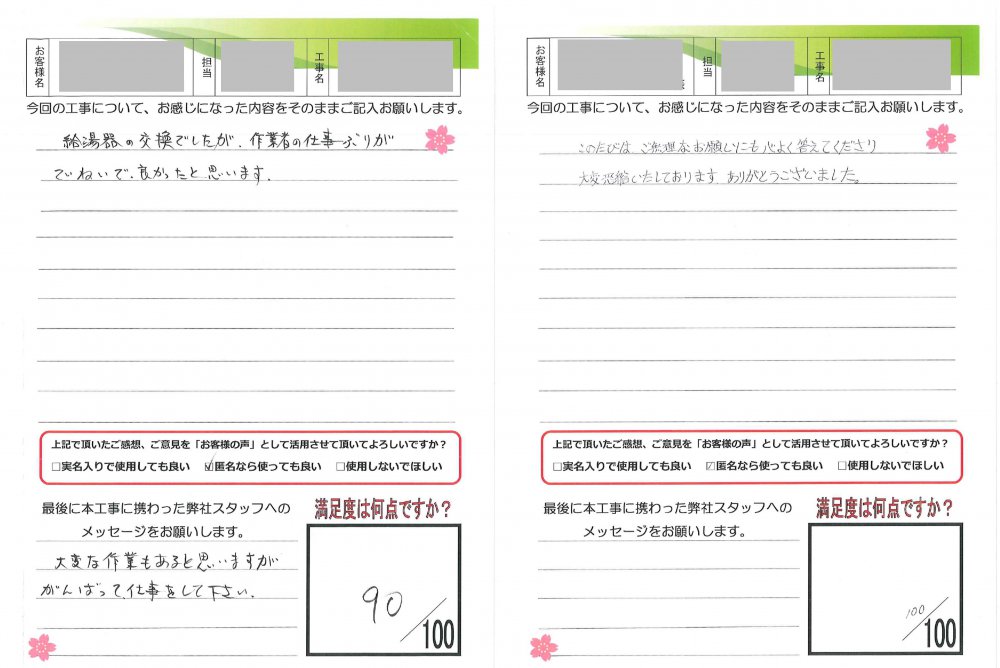 お客様名
担当
工事名
今回の工事について、お感じになった内容をそのままご記入お願いします。
給湯器の交換でしたが、作業者の仕事ぶりが
ていねいで、良かったと思います.
上記で頂いたご感想、ご意見を「お客様の声」として活用させて頂いてよろしいですか？
□実名入りで使用しても良い ☑匿名なら使っても良い □使用しないでほしい
最後に本工事に携わった弊社スタッフへの
メッセージをお願いします。
大変な作業もあると思いますが
がんばって、仕事をして下さい.
満足度は何点ですか？
90/100
お客様名
担当
工事名
様
今回の工事について、お感じになった内容をそのままご記入お願いします。
このたびは ご無理なお願いにも 心よく答えてくださり
大変恐縮いたしております ありがとうございました。
上記で頂いたご感想、ご意見を「お客様の声」として活用させて頂いてよろしいですか？
□実名入りで使用しても良い ☑匿名なら使っても良い □使用しないでほしい
最後に本工事に携わった弊社スタッフへの
メッセージをお願いします。
満足度は何点ですか？
100/100